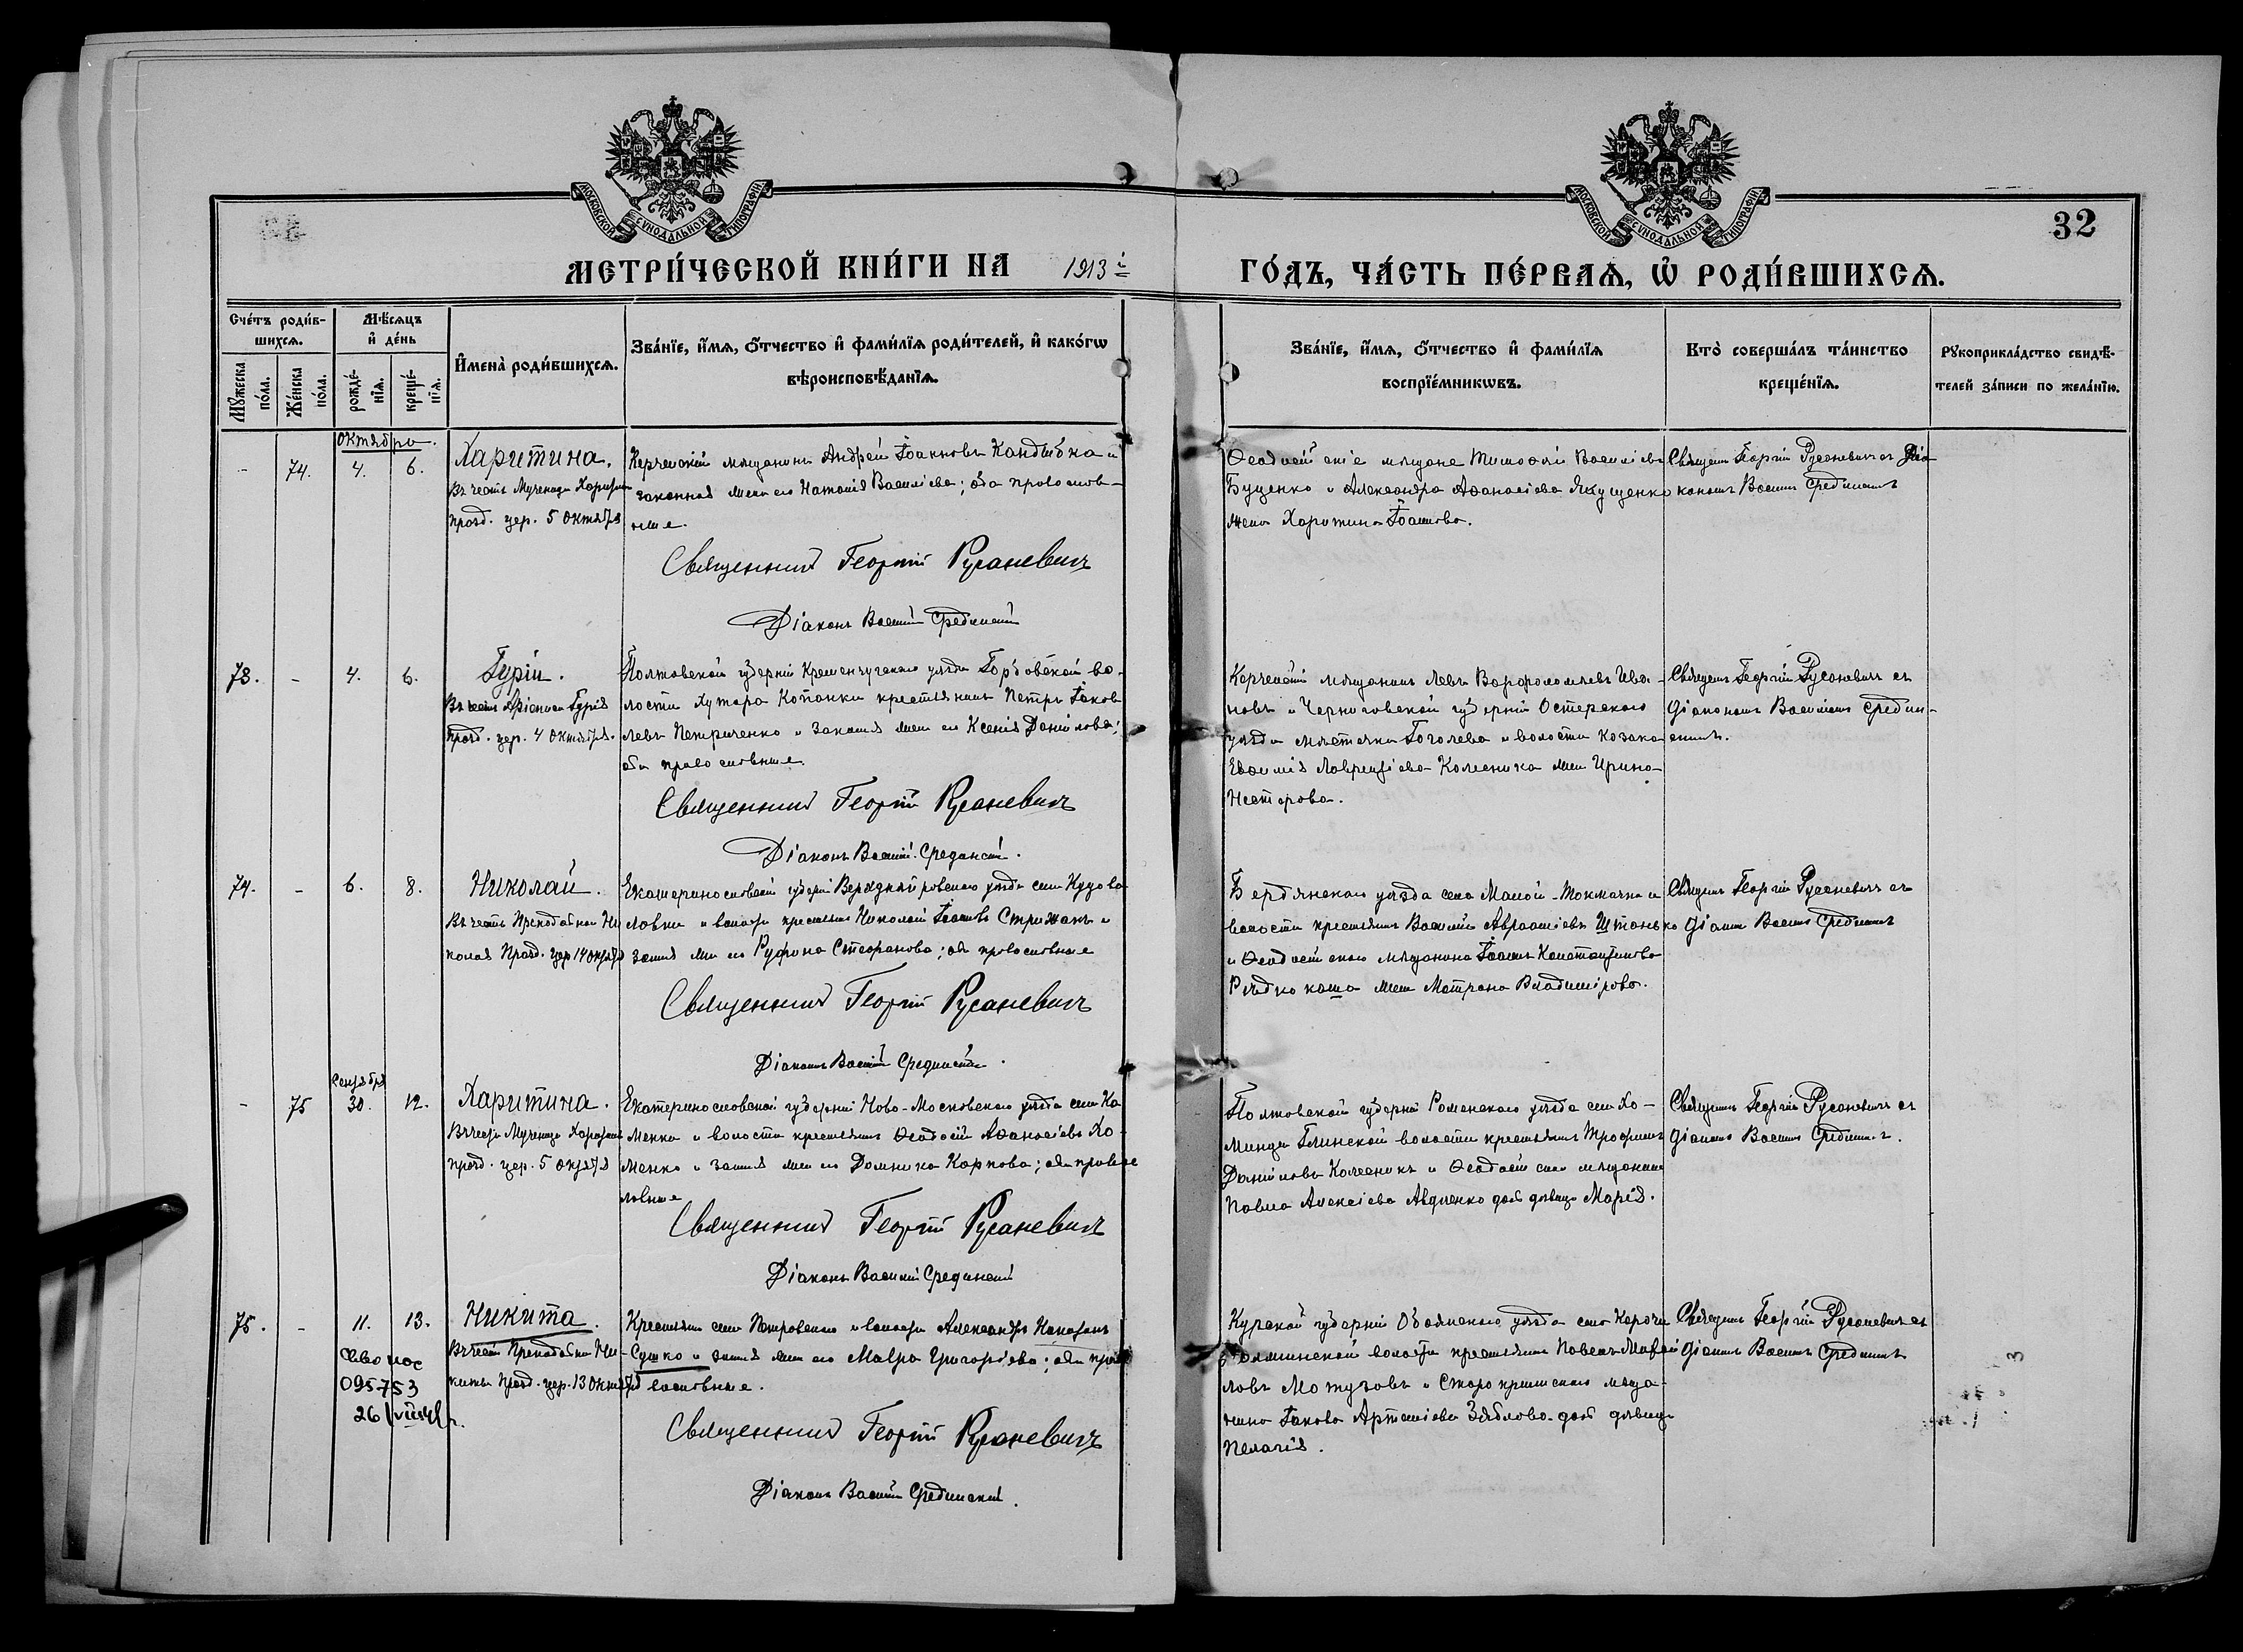 МОСКОВСКОЙ СѴНОДАЛЬНОЙ ТИПОГРАФІИ
МОСКОВСКОЙ СѴНОДАЛЬНОЙ ТИПОГРАФІИ
32
МЕТРИ́ЧЕСКОЙ КНИ́ГИ НА 1913 й
ГО́ДЪ, ЧА́СТЬ ПЕ́РВАѦ, Ѡ҆ РОДИ́ВШИХСѦ.
Сче́тъ роди́в-
шихсѧ.
Мꙋжеска по́ла.
Же́нска по́ла.
Мѣ́сѧцъ
и҆ де́нь
рожде́-
нїѧ.
креще́-
нїѧ.
И҆мена̀ роди́вшихсѧ.
Зва́нїе, и҆́мѧ, ѻ҆́тчество и҆ фами́лїѧ роди́телей, и҆ како́гѡ
вѣроисповѣ́данїѧ.
Зва́нїе, и҆́мѧ, ѻ҆́тчество и҆ фами́лїѧ
воспрїе́мникѡвъ.
Кто̀ соверша́лъ та́инство
креще́нїѧ.
Рꙋкоприкла́дство свидѣ́-
телей за́писи по жела́нїю.
Октября.
- 74. 4. 6.
Харитина.
Въ честь Мученицы Харитин
празд. цер. 5 Октября
Керченскій мѣщанинъ Андрей Іоанновъ Кандыбка и
законная жена его Наталія Васильева; оба православ-
ные.
Священникъ Георгій Русаневичъ
Діаконъ Василій Срединскій
Ѳеодосійскіе мѣщане Тимоѳей Васильевъ
Буценко и Александра Аѳанасіева Якущенко
жена Харитина Іоаннова.
Священ. Георгій Русаневичъ съ Діа
кономъ Василіемъ Срединскимъ
73. - 4. 6.
Гурій.
Въ честь Архіепископа Гурія
празд. цер. 4 Октября.
Полтавской губерніи Кременчугскаго уѣзда Горбовской во-
лости Хутора Котанки крестьянинъ Петръ Іаков-
левъ Петриченко и законная жена его Ксенія Даніилова;
оба православные.
Священникъ Георгій Русаневичъ
Діаконъ Василій Срединскій.
Керченскій мѣщанинъ Левъ Варфоломѣевъ Ива-
новъ и Черниговской губерніи Остерскаго
уѣзда мѣстечка Гоголева и волости Козака
Евѳимія Лаврентіева Колесника жена Ирина
Нестерова.
Священ. Георгій Русаневичъ съ
діакономъ Василіемъ Средин-
скимъ.
74. - 6. 8.
Николай.
Въ честь Преподобнаго Ни
колая Празд. цер. 14 октября
Екатеринославской губерніи Верхнеднѣпровскаго уѣзда села
ловки и волости крестьянинъ Николай Іоанновъ Стрижакъ и
законная жена его Руфина Стефанова; оба православные
Священникъ Георгій Русаневичъ
Діаконъ Василій Срединскій.
Бердянскаго уѣзда села Малой-Токмачки и
волости крестьянинъ Василій Авраамiевъ Штанько
и Ѳеодосійскаго мѣщанина Іоанна Константинова
Рѣдкокаша жена Матрона Владимірова.
Священ. Георгій Русаневичъ съ
діаконом Василіемъ Срединскимъ
Сентября
- 75 30. 12.
Харитина.
Въ честь Мученицы Харитин
празд. цер. 5 Октября
Екатеринославской губерніи Ново-Московскаго уѣзда села
менки и волости крестьянинъ Ѳеодосій Аѳанасіевъ Хо-
менко и законная жена его Домника Карпова; оба правос
лавные
Священникъ Георгій Русаневичъ
Діаконъ Василій Срединскій
Полтавской губерніи Роменскаго уѣзда села Хо-
минцы Глинской волости крестьянинъ Трофимъ
Даніиловъ Колесникъ и Ѳеодосійскаго мѣщанина
Павла Алексіева Авдѣенко дочь дѣвица Марія.
Священ. Георгій Русаневичъ съ
діаконом Василіемъ Срединскимъ.
75. - 11. 13.
095753
Никита.
Въ честь Преподобнаго Ни-
киты Празд. цер. 13 Октября
Крестьянинъ села Петровскаго и волости Александръ
Сушко и законная жена его Мавра Григоріева; оба пра-
вославные.
Священникъ Георгій Русаневичъ
Діаконъ Василій Срединскій.
Курской губерніи Обоянскаго уѣзда села Корочи
волости крестьянинъ Павелъ
ловъ Мотузовъ и Старокрымскаго мѣща-
нина Іакова Артеміева Зяблова дочь дѣвица
Пелагія.
Священ. Георгій Русаневичъ съ
діаконом Василіемъ Срединскимъ